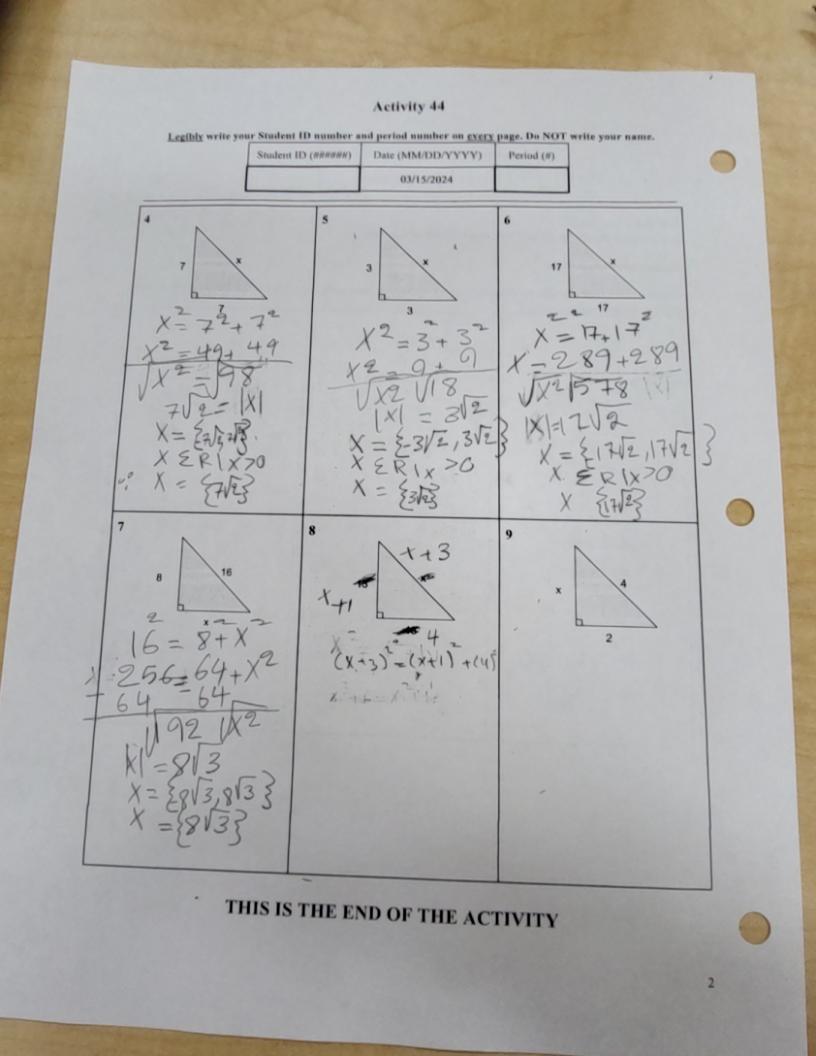 Activity 44
Legibly write your Student ID number and period number on every page. Do NOT write your name.
Student ID (######) Date (MM/DD/YYYY) Period (#)
03/15/2024
4
7
x
7
x² = 7² + 7²
x² = 49 + 49
√x² = √98
7√2 = |x|
x =
x ∈ R | x > 0
∴ x = {7√2}
5
3
x
3
x² = 3² + 3²
x² = 9 + 9
√x2 √18
|x| = 3√2
x = {-3√2, 3√2}
x ∈ R | x > 0
x = {3√2}
6
17
x
17
x² = 17² + 17²
x² = 289 + 289
√x² √578
|x| = 17√2
x = {17√2, 17√2}
x ∈ R | x > 0
x {17√2}
7
8
16
x
16² = 8² + x²
256 = 64 + x²
- 64 - 64
√192 √x²
|x| = 8√3
x = {8√3, 8√3}
x = {8√3}
8
x + 3
x + 1
4
(x + 3)² = (x + 1)² + (4)²
9
x
4
2
THIS IS THE END OF THE ACTIVITY
2